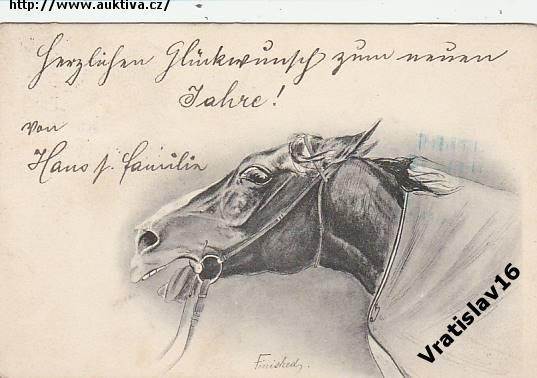 http://www.auktiva.cz/
Herzlichen Glückwunsch zum neuen
Jahre!
von
Hans s. Familie
Finished.
Vratislav16